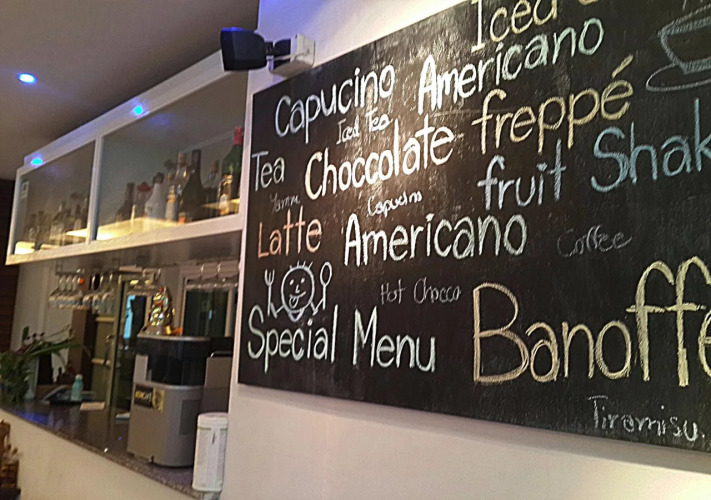 Iced
Capucino Americano
Iced Tea
Tea Choccolate freppé
Yamm Capucino fruit Shak
Latte Americano Coffee
Hot Chocco
Special Menu Banoffe
Tiramisu